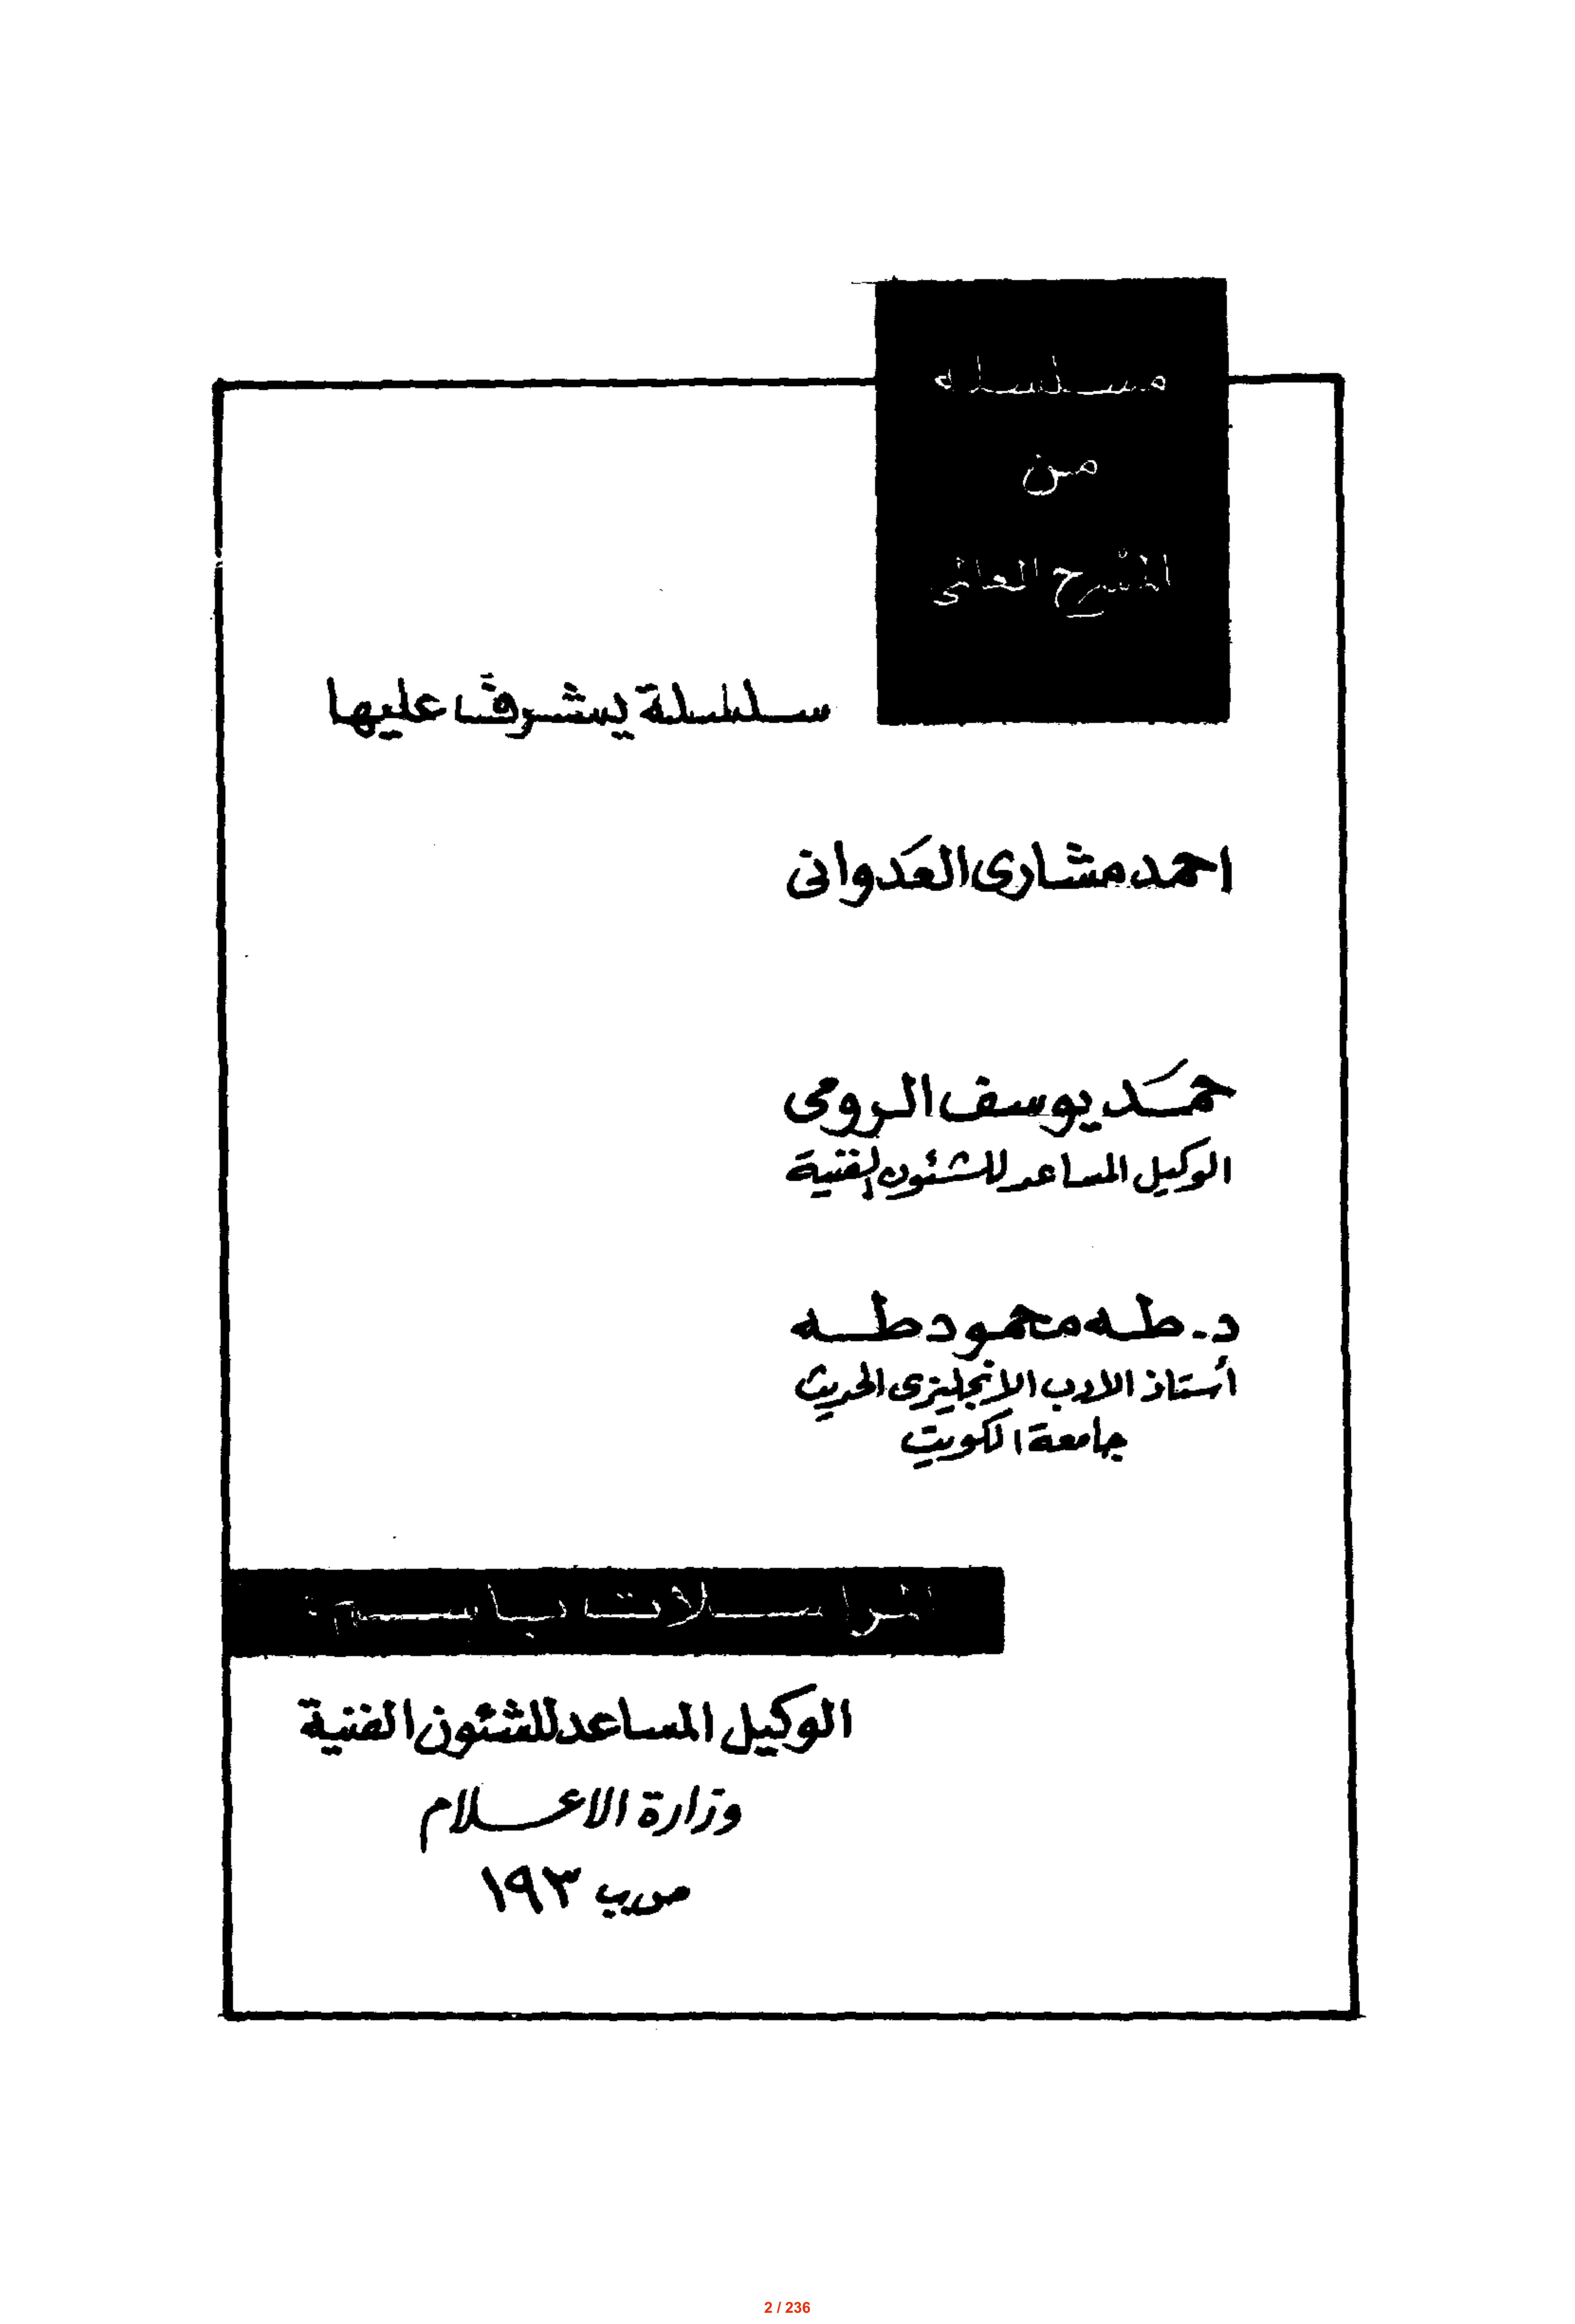 سلسلة
من
المسرح العالمى
سلسلة يشرف عليها
احمد مشارى العدوانى
حمد يوسف الرومى
الوكيل المساعد للشئون الفنية
د. طه محمود طه
أستاذ الادب الانجليزى الحديث
جامعة الكويت
المراسلات باسم
الوكيل المساعد للشئون الفنية
وزارة الاعلام
ص.ب ١٩٣
2 / 236